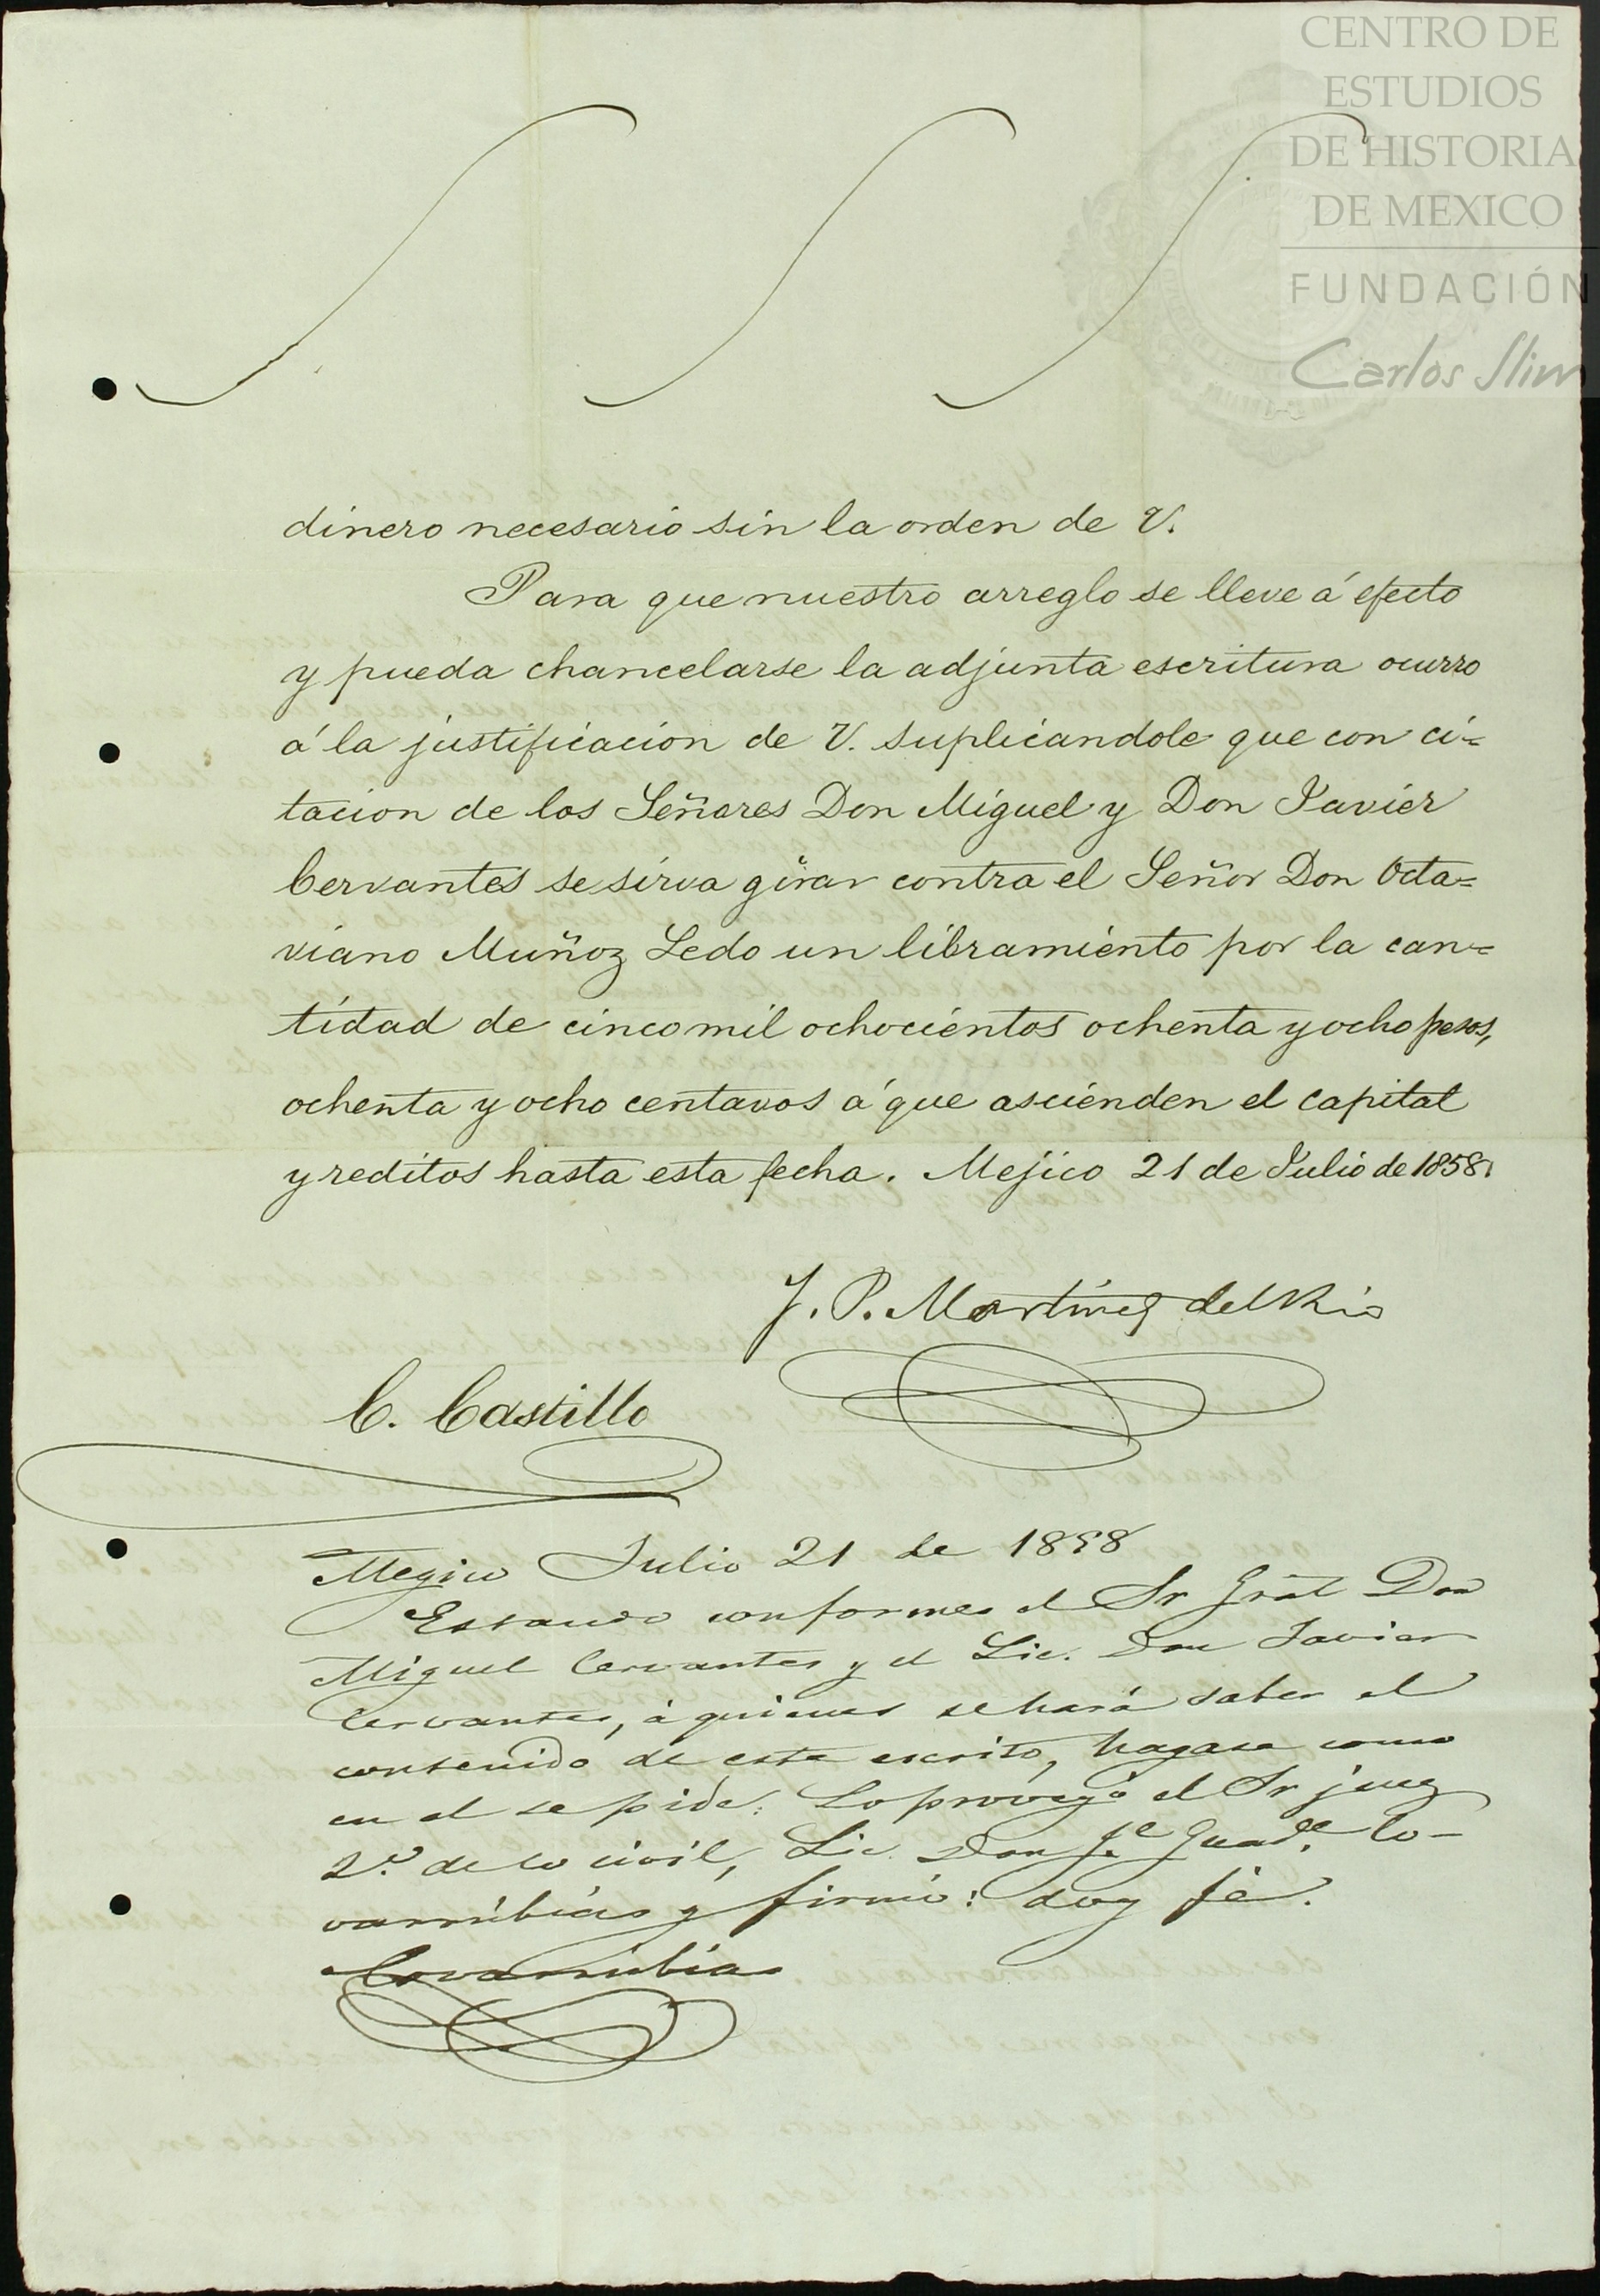 CENTRO DE
ESTUDIOS
DE HISTORIA
DE MEXICO
FUNDACIÓN
Carlos Slim
dinero necesario sin la orden de V.
Para que nuestro arreglo se lleve á efecto
y pueda chancelarse la adjunta escritura ocurro
á la justificacion de V. suplicandole que con ci=
tacion de los Señores Don Miguel y Don Javier
Cervantes se sirva girar contra el Señor Don Octa=
viano Muñoz Ledo un libramiento por la can=
tidad de cinco mil ochocientos ochenta y ocho pesos,
ochenta y ocho centavos á que ascienden el capital
y reditos hasta esta fecha. Mejico 21 de Julio de 1858.
J. P. Martinez del Rio
C. Castillo
Megico Julio 21 de 1858
Estando conformes el Sr Gral Don
Miguel Cervantes y el Lic. Don Javier
Cervantes, á quienes se hará saber el
contenido de este escrito, hagase como
en el se pide. Lo proveyó el Sr juez
2.º de lo civil, Lic. Don Je. Guade. Co-
varrúbias y firmó: doy fé.
Covarrubias